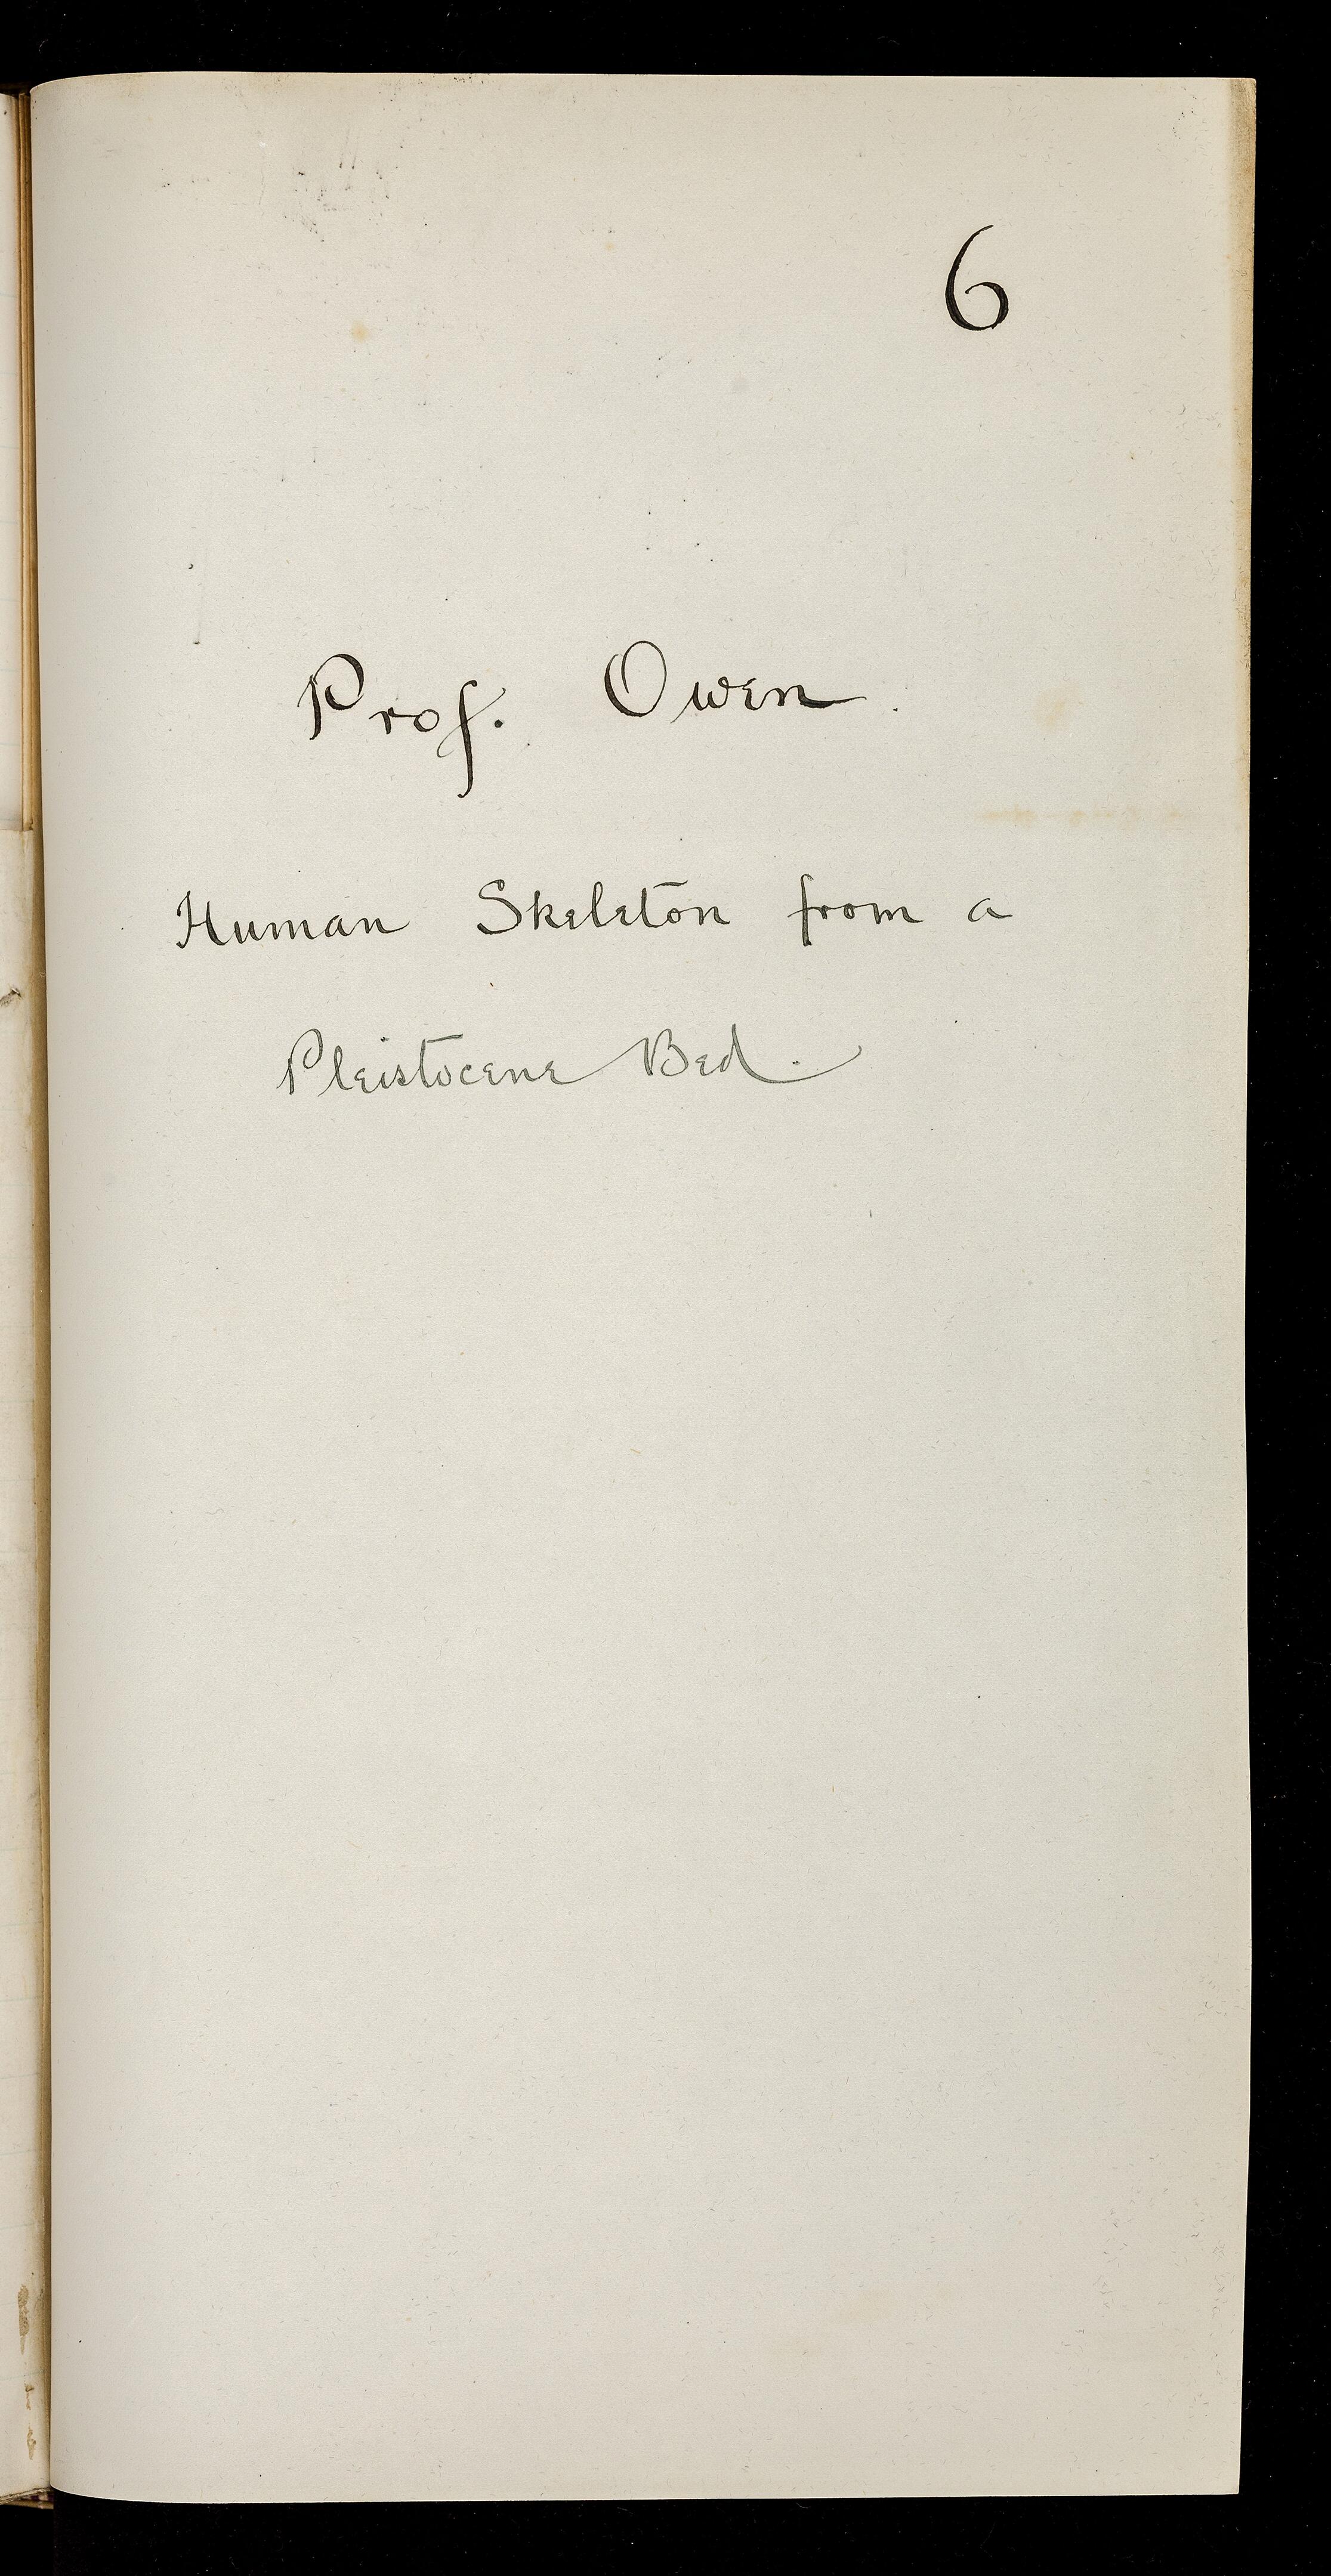 6
Prof. Owen.
Human Skeleton from a
Pleistocene Bed.